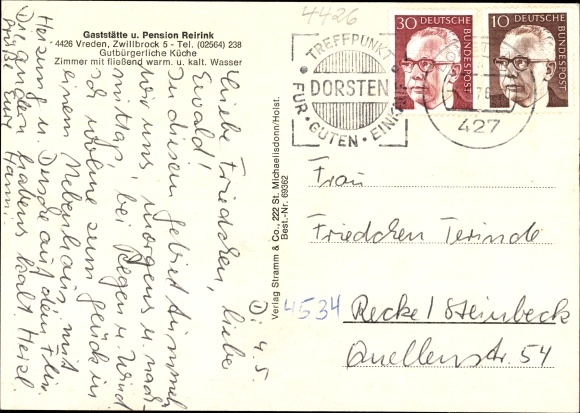 4426
Gaststätte u. Pension Reirink
4426 Vreden, Zwillbrock 5 - Tel. (02564) 238
Gutbürgerliche Küche
Zimmer mit fließend warm. u. kalt. Wasser
30
DEUTSCHE BUNDESPOST
10
DEUTSCHE BUNDESPOST
TREFFPUNKT
DORSTEN
FÜR · GUTEN · 
427
Verlag Stramm & Co., 222 St. Michaelisdonn/Holst.
Best.-Nr. 69362
D. 4. 5.
Liebe Friedchen, liebe
Ewald!
In diesen gebirt Zimmer
wir uns morgens u. nach-
mittags, bei Regen u. Wind
Ich wohne zum Glück in
einem Nebenhaus mit
Heizung u. Dusche auf dem Flur.
Die andern haben kalt
Grüße Eure Hanni.
Frau
Friedchen Terinde
4534 Recke / Steinbeck
Quellenstr. 54